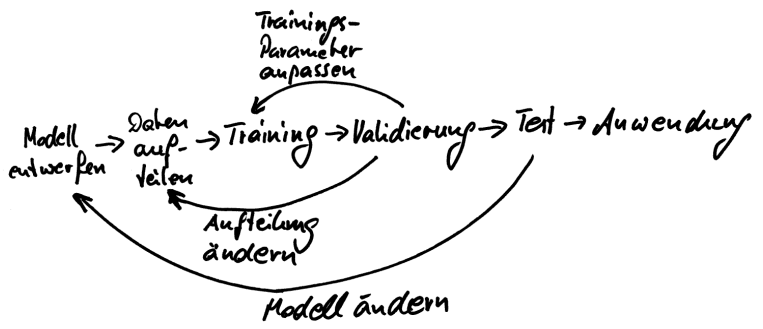 Trainings-
Parameter
anpassen
Modell
entwerfen
Daten
auf-
teilen
Training
Validierung
Test
Anwendung
Aufteilung
ändern
Modell ändern